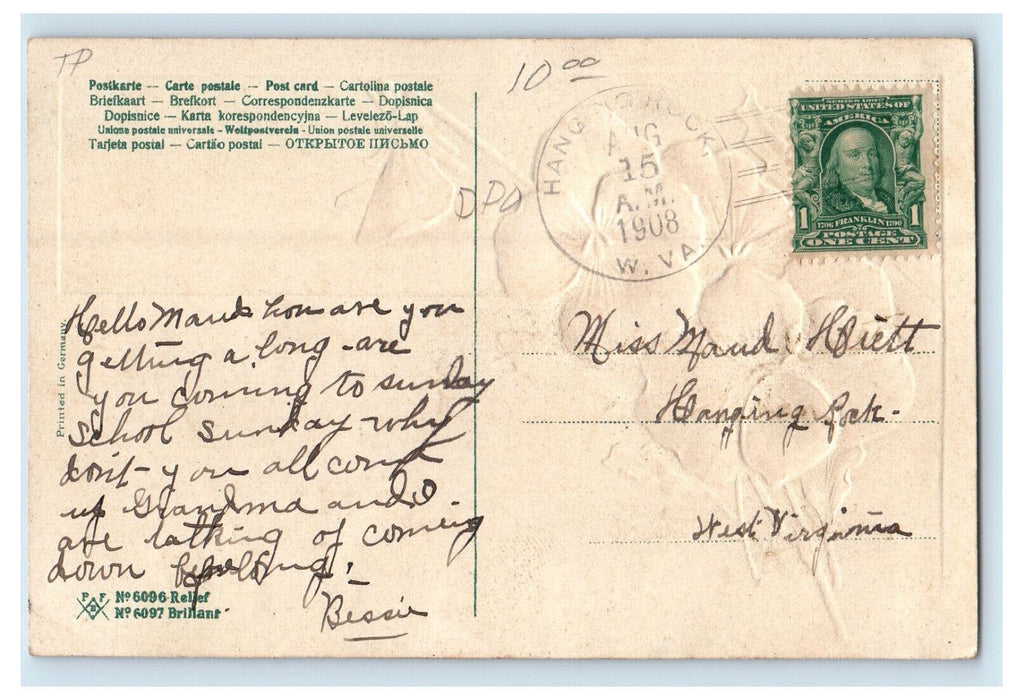 TP
10 00
Postkarte — Carte postale — Post card — Cartolina postale
Briefkaart — Brefkort — Correspondenzkarte — Dopisnica
Dopisnice — Karta korespondencyjna — Levelező-Lap
Unione postale universale - Weltpostverein - Union postale universelle
Tarjeta postal — Cartão postal — ОТКРЫТОЕ ПИСЬМО
DPO
HANGING ROCK,
AUG
15
A.M.
1908
W. VA.
SERIES 1902
UNITED STATES OF
AMERICA
1 1
1706 FRANKLIN 1790
POSTAGE
ONE CENT
Printed in Germany.
Hello Maud how are you
getting a long - are
you coming to sunday
school sunday - why
don't - you all come
up Grandma and I
are talking of coming
down before long.
Bessie
Miss Maud Hiett
Hanging Rock -
West Virginia
P F B
Nº 6096 Relief
Nº 6097 Brillant